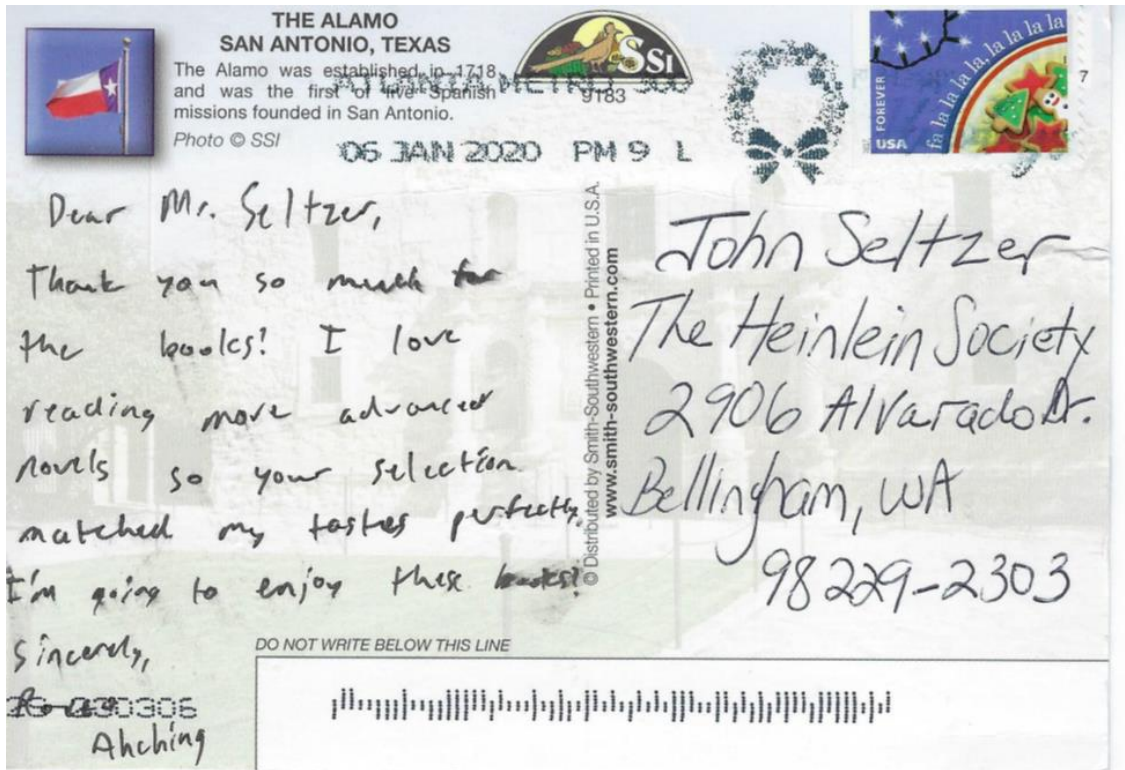 THE ALAMO
SAN ANTONIO, TEXAS
The Alamo was established in 1718
and was the first of five Spanish
missions founded in San Antonio.
Photo © SSI
SSI
9183
ATLANTA METRO 300
06 JAN 2020 PM 9 L
FOREVER
USA
fa la la la la, la la la la
7
Dear Mr. Seltzer,
Thank you so much for
the books! I love
reading more advanced
novels so your selection
matched my tastes perfectly.
I'm going to enjoy these books!
Sincerely,
030306
Ahching
© Distributed by Smith-Southwestern • Printed in U.S.A.
www.smith-southwestern.com
John Seltzer
The Heinlein Society
2906 Alvarado Dr.
Bellingham, WA
98229-2303
DO NOT WRITE BELOW THIS LINE